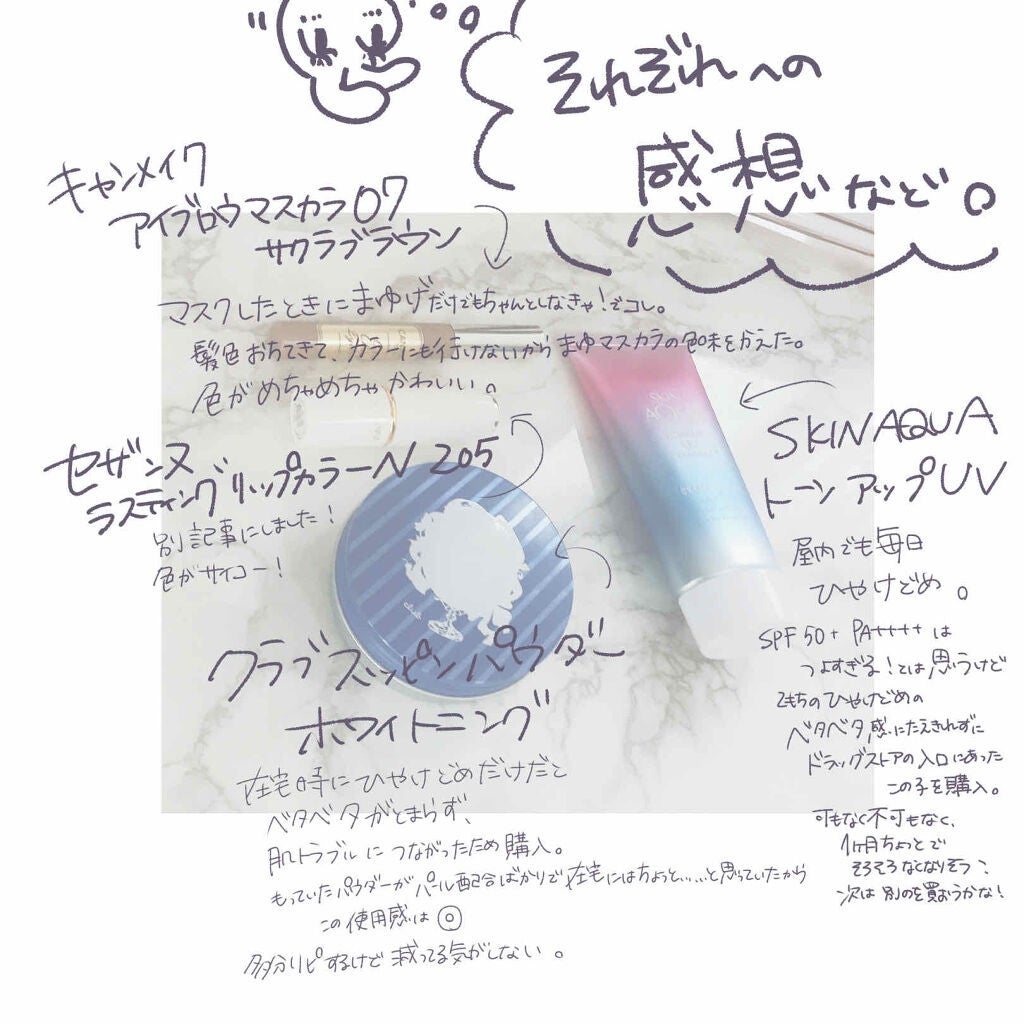 それぞれへの
感想など。
キャンメイク
アイブロウマスカラ07
サクラブラウン
マスクしたときにまゆげだけでもちゃんとしなきゃ!でコレ。
髪色おちてきて、カラーにも行けないからまゆマスカラの色味をかえた。
色がめちゃめちゃかわいい。
セザンヌ
ラスティングリップカラーN 205
別記事にしました!
色がサイコー!
SKIN AQUA
トーンアップUV
屋内でも毎日
ひやけどめ。
SPF50+ PA++++は
つよすぎる!とは思うけど
手もちのひやけどめの
ベタベタ感にたえきれずに
ドラッグストアの入口にあった
この子を購入。
可もなく不可もなく、
1ヶ月ちょっとで
そろそろなくなりそう、
次は別のを買おうかな!
クラブスッピンパウダー
ホワイトニング
在宅時にひやけどめだけだと
ベタベタがとまらず、
肌トラブルにつながったため購入。
もっていたパウダーがパール配合ばかりで在宅にはちょっと……と思っていたから
この使用感は◎
多分リピするけど減ってる気がしない。